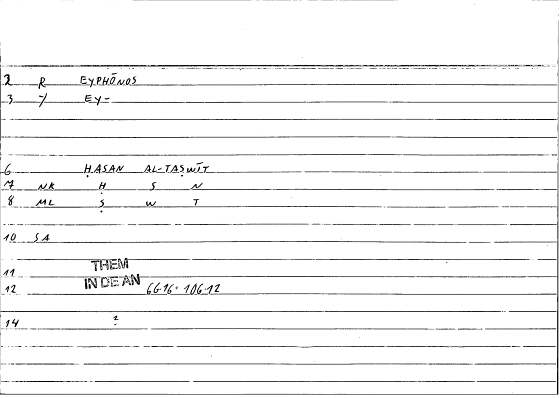 2 R EYPHŌNOS
3 7 EY-
6 ḤASAN AL-TAṢWĪT
7 NK Ḥ S N
8 ML Ṣ W T
10 SA
11 THEM
12 IN DE AN 66·16· 106·12
14 2